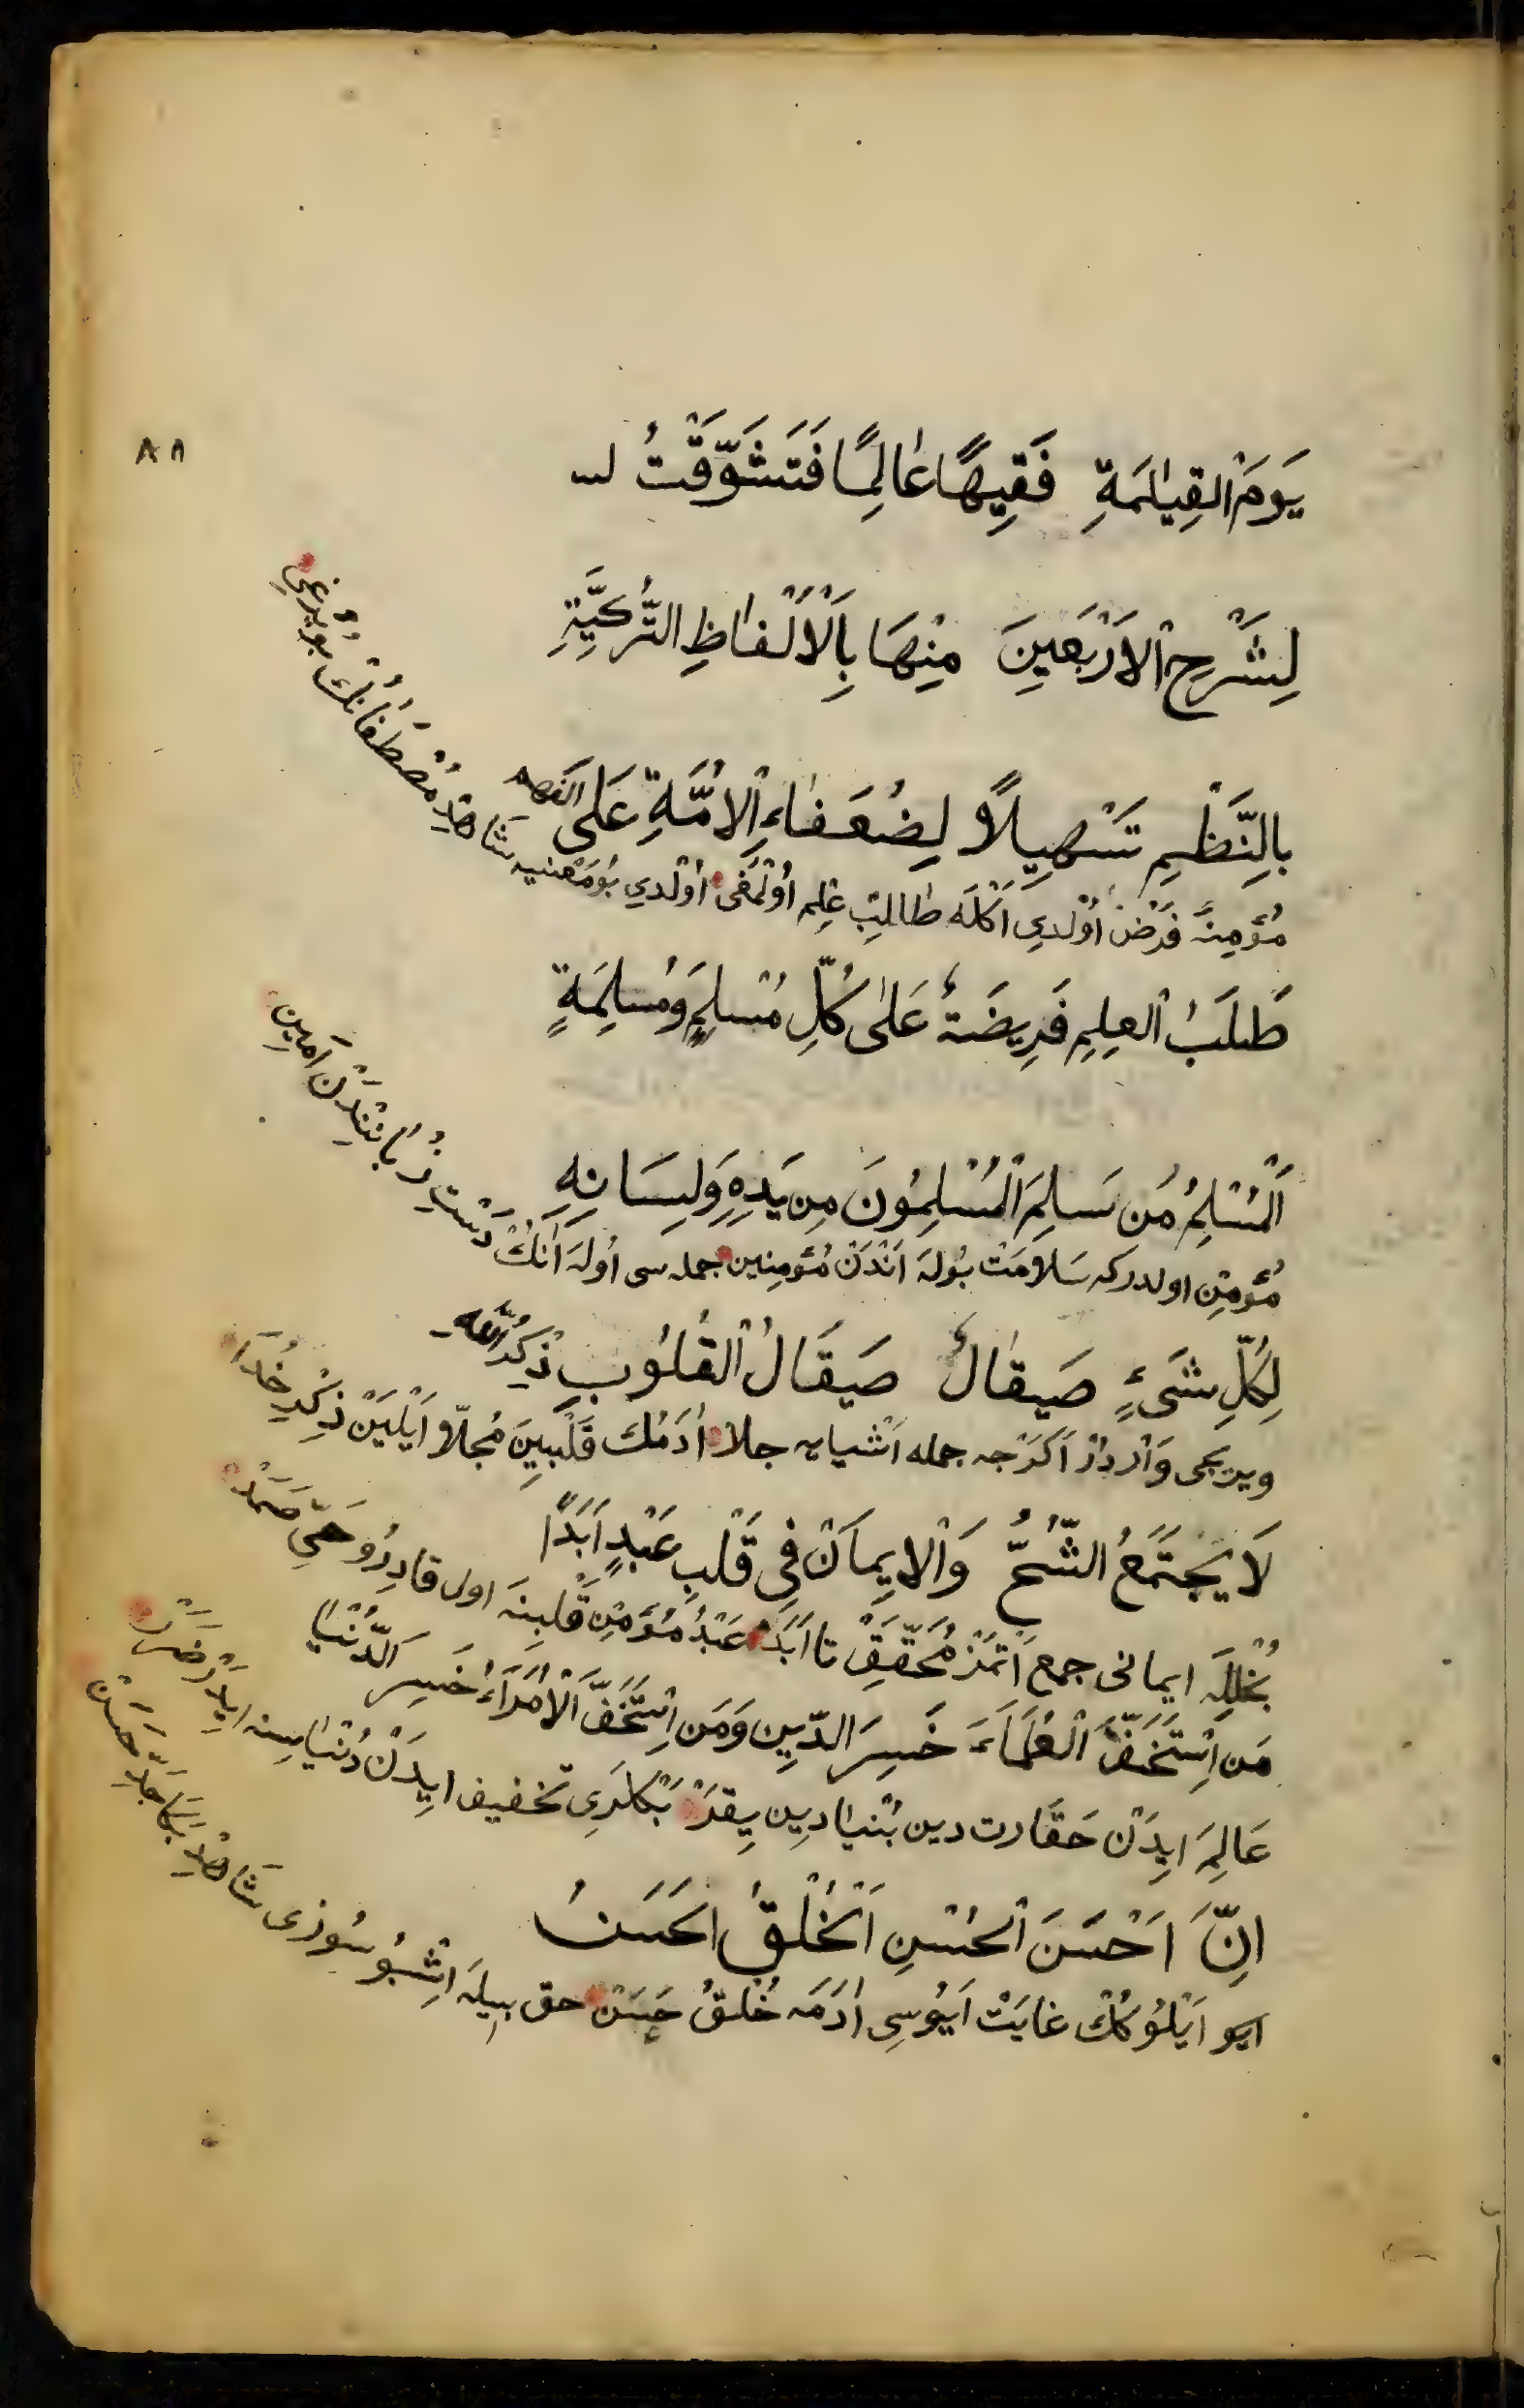 ٨٨
يَوْمَ الْقِيٰمَةِ فَقِيهًا عَالِمًا فَتَشَوَّقَتْ
لِشَرْحِ الْاَرْبَعِينَ مِنْهَا بِالْاَلْفَاظِ التُّرْكِيَّةِ
بِالنَّظْمِ تَسْهِيلًا لِضُعَفَاءِ الْاُمَّةِ عَلَى الفهم
مُؤْمِنَه فَرْضْ اُولْدِي اَكْلَه طَالِبِ عِلِم اُولْمَقْ اُولْدِي بُو مَعْنِيه شَاهِدْ مُصْطَفَانُكْ بُويُرُغِي
طَلَبُ الْعِلْمِ فَرِيضَةٌ عَلٰى كُلِّ مُسْلِمٍ وَمُسْلِمَةٍ
اَلْمُسْلِمُ مَنْ سَلِمَ الْمُسْلِمُونَ مِنْ يَدِهِ وَلِسَانِهِ
مُؤْمِن اولدركه سَلَامَتْ بُولَه اَنْدَنْ مُؤْمِنِين جمله سى اُولَه اَنُكْ دَسْتِ زُبَانِنْدَنْ اَمِين
لِكُلِّ شَىْءٍ صَيْقَالٌ صَيْقَالُ الْقُلُوبِ ذِكْرُ اللّٰهِ
ويريجى وَارْدُرْ اَكَرْچه جمله اَشْيايه جلا اٰدَمُكْ قَلْبِينِ مُجَلَّا اَيْلَيَنْ ذِكْرِ خُدَا
لَا يَجْتَمَعُ الشُّحُّ وَالْاِيمَانْ فِى قَلْبِ عَبْدٍ اَبَدًا
بُخْلِلَه ايمانى جمع اتْمَزْ مُحَقَّقْ تا اَبَدْ عَبْدُ مُؤْمِن قَلْبِنَه اول قادِرُ و حَىِّ صَمَدْ
مَنِ اسْتَخَفَّ الْعُلَمَاءَ خَسِرَ الدِّينِ وَمَنِ اسْتَخَفَّ الْاُمَرَاءَ خَسِرَ الدُّنْيَا
عَالِمَه ايدَنْ حَقَارت دين بُنْيادِين يِقَرْ بَكْلَرِى تخفيف ايدَنْ دُنْيَاسِنه ايلَرْ ضَرَرْ
اِنَّ اَحْسَنَ الْحُسْنِ اَلْخُلْقُ الْحَسَنُ
ايو اَيْلُوكُكْ غايَتْ اَيُوسِى اٰدَمَه خُلْقُ حَسَنْ حق بيله اشْبُو سُوزى شَاهِدْ بَكَا جَدِّ حَسَنْ